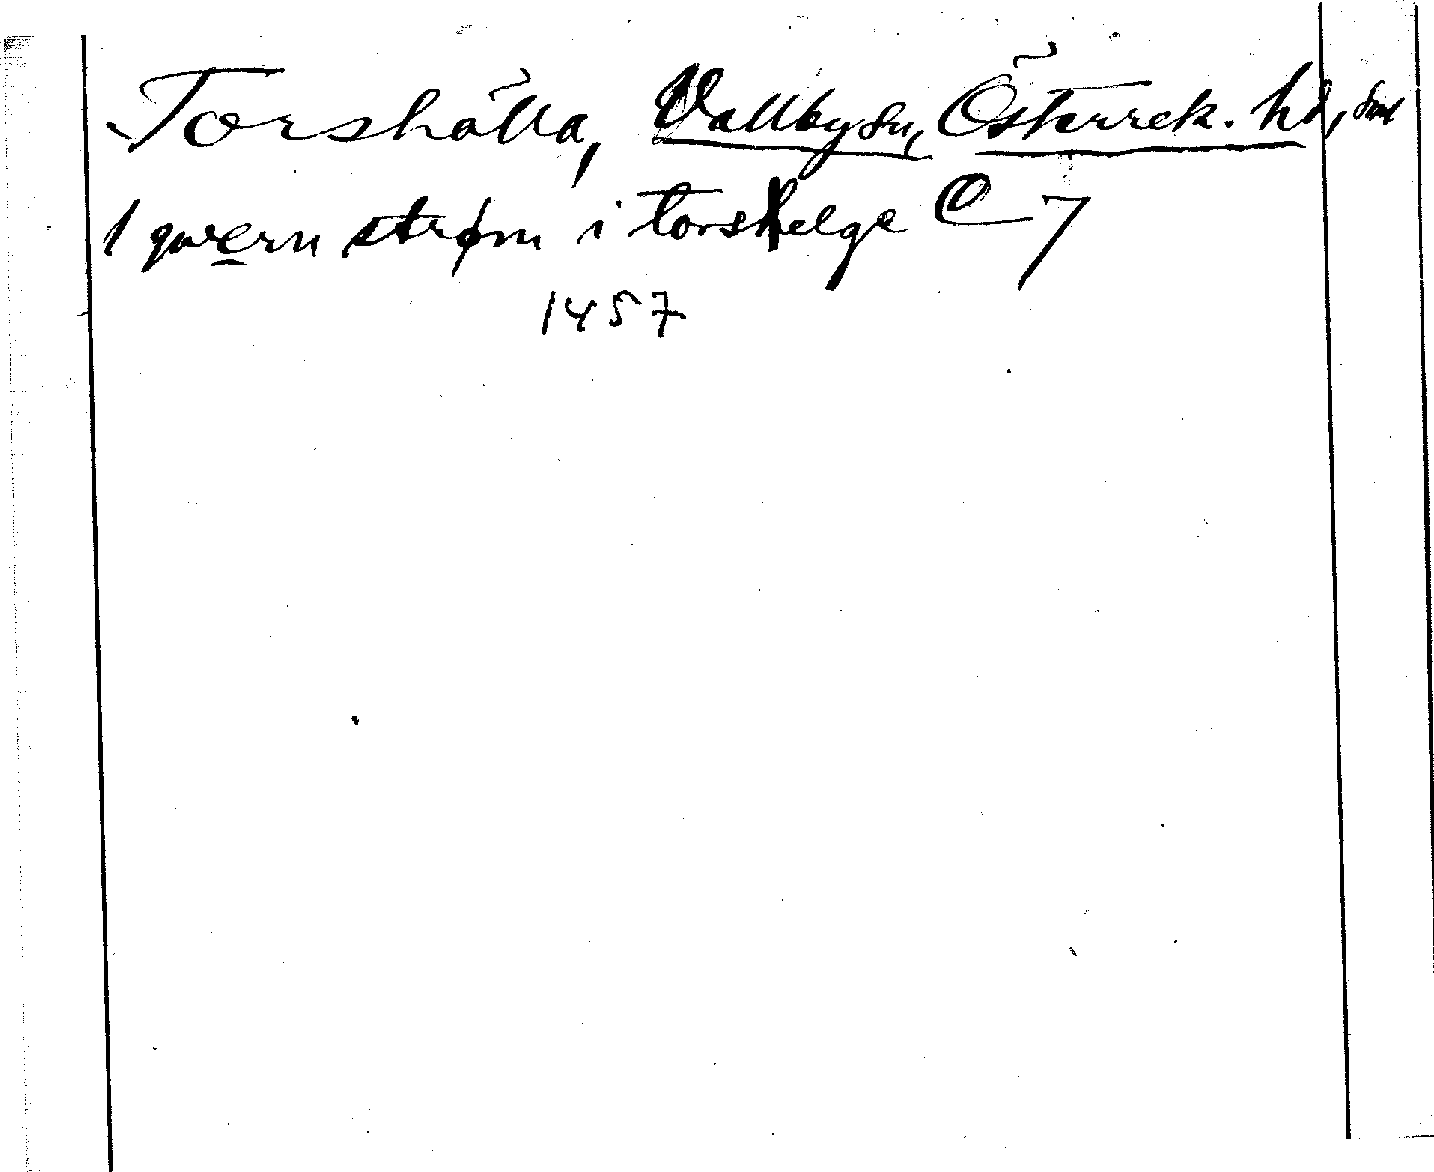 Torshälla, Vallby sn, Österrek. hd, Sml
1 qværn strøm i torshelge C 7
1457